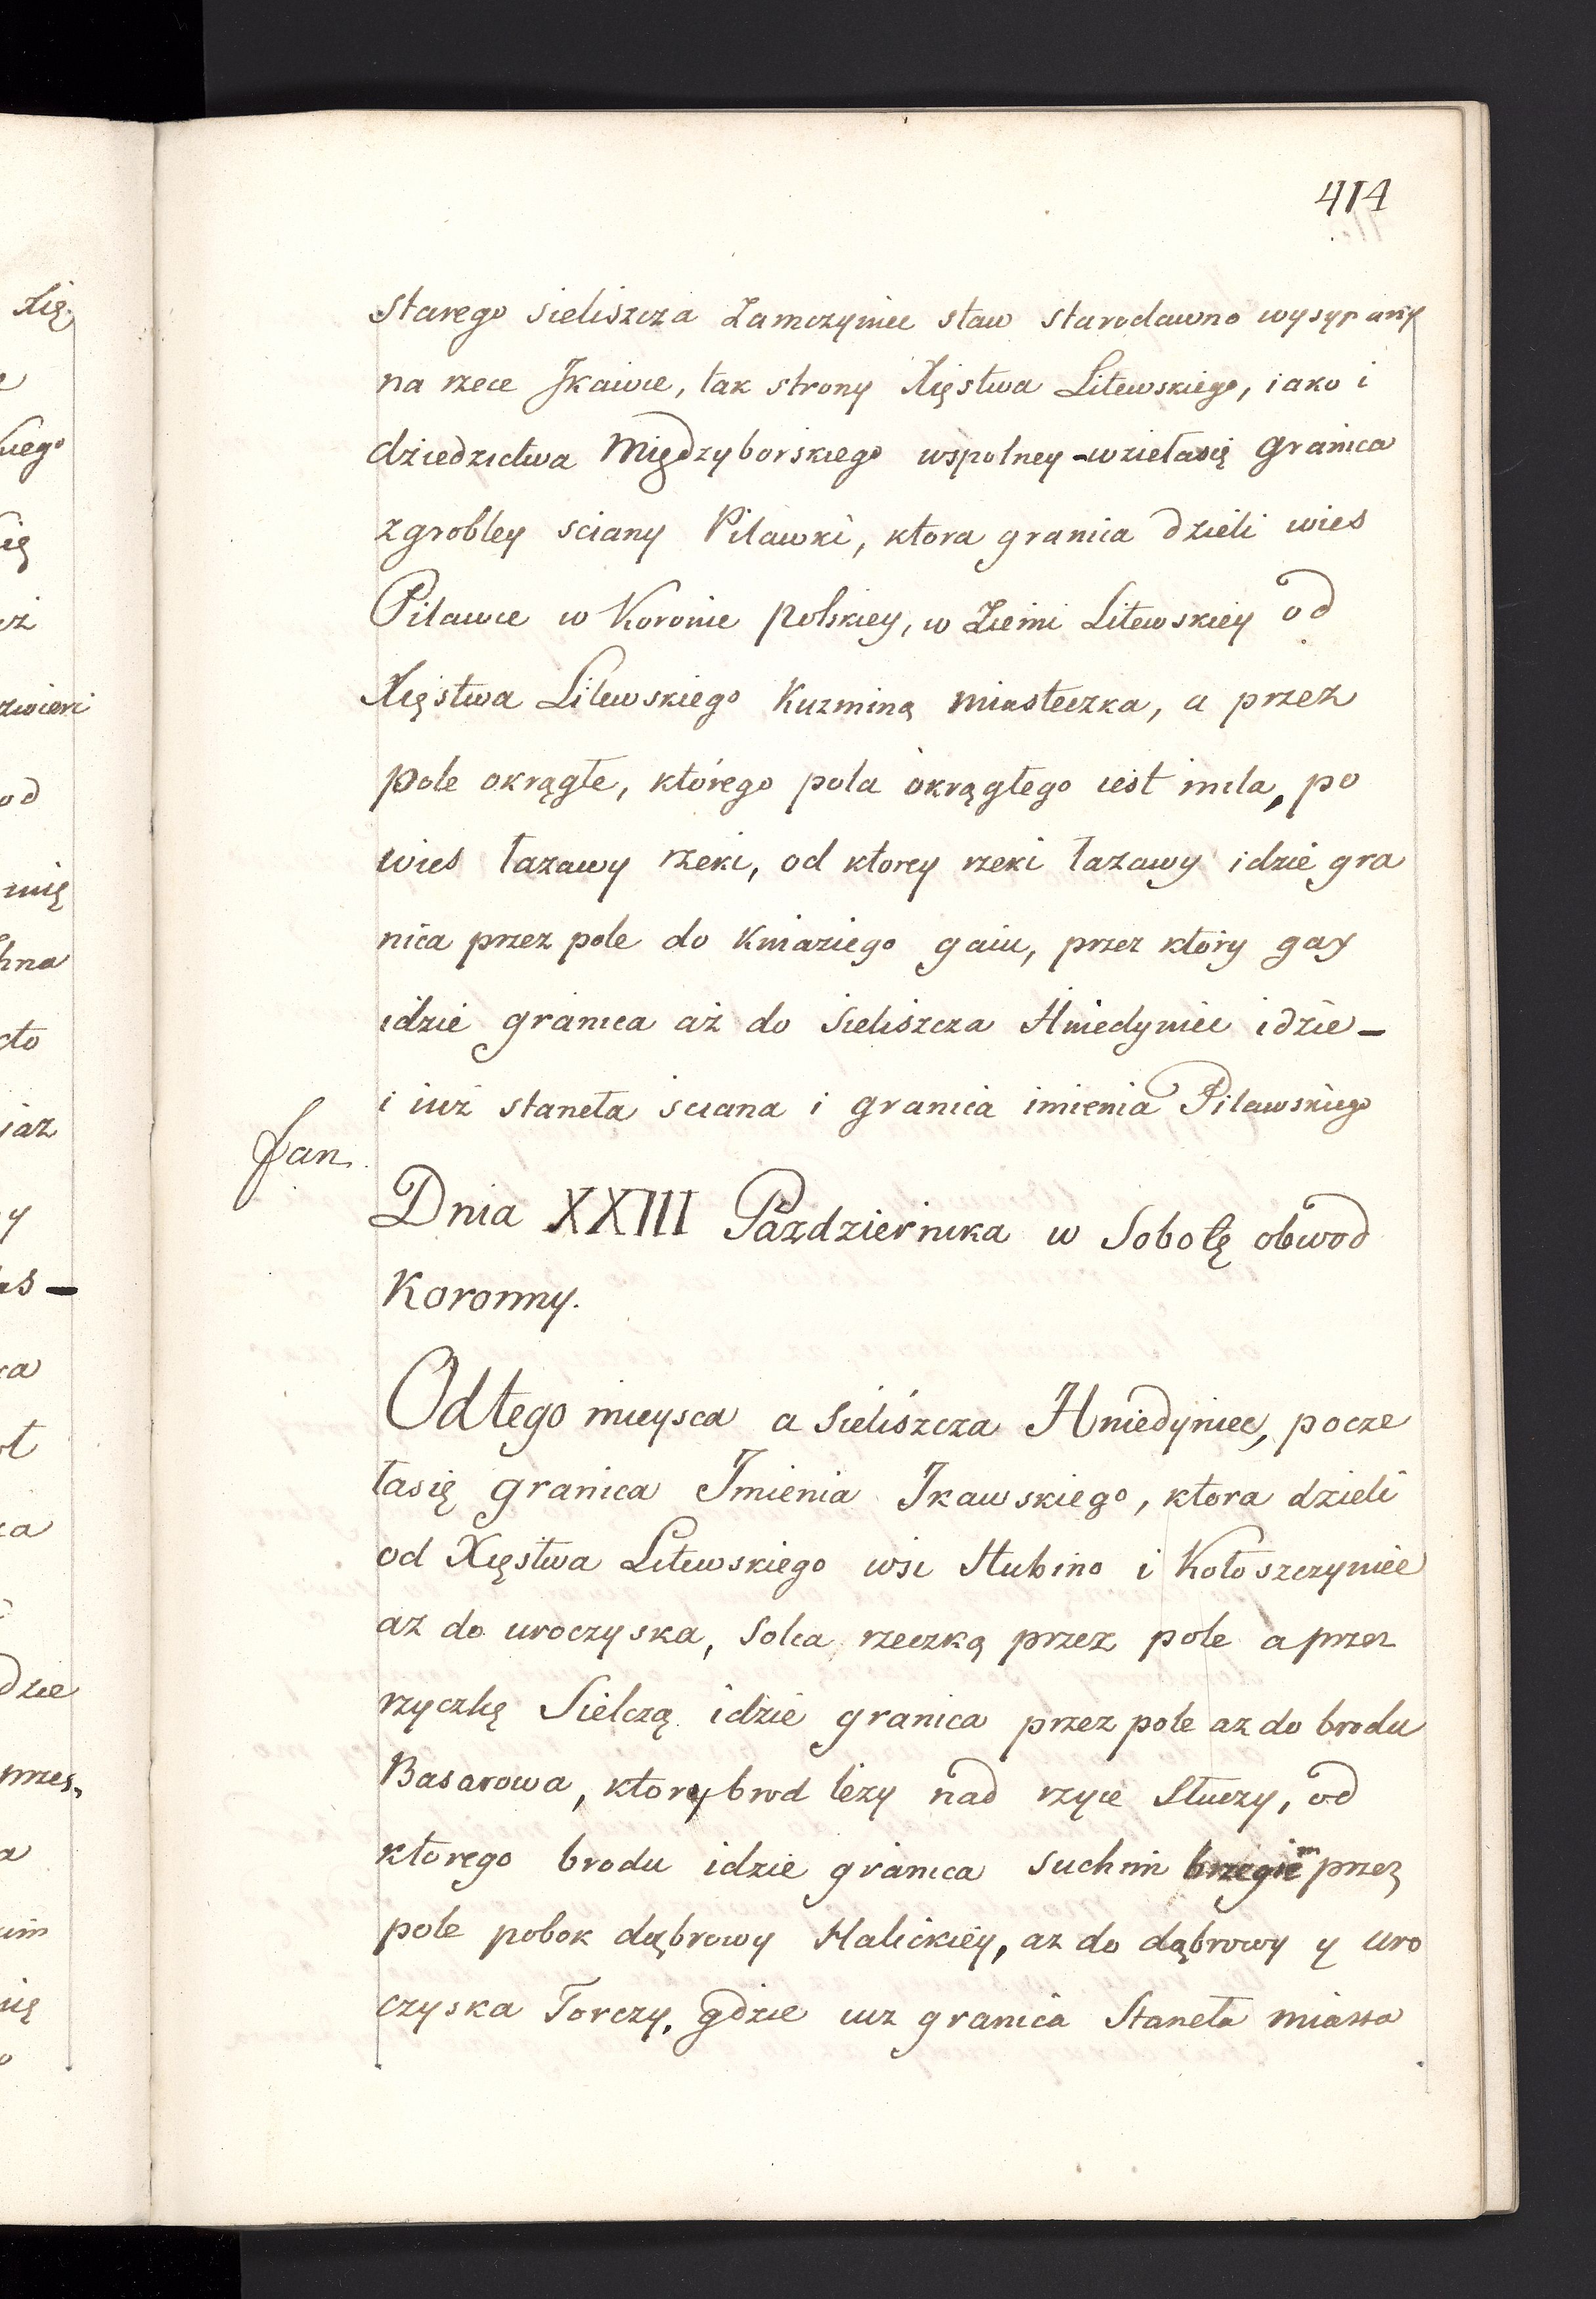 414
starego sieliszcza Zamczyniec staw starodawno wysypany
na rzece Jkawie, tak strony Xięstwa Litewskiego, iako i
dziedzictwa Międzyborskiego wspolney - wzietasię granica
z grobley sciany Pilawki, ktora granica dzieli wies
Pilawce w Koronie Polskiey, w Ziemi Litewskiey od
Xięstwa Litewskiego Kuzminą miasteczka, a przez
pole okrągłe, którego pola okrągłego iest mila, po
wies łazawy rzeki, od ktorey rzeki łazawy idzie gra
nica przez pole do Kniaziego gaiu, przez który gay
idzie granica aż do Sieliszcza Hniedyniec idzie -
i iuż staneła sciana i granica imienia Pilawskiego
Jan.
Dnia XXIII Pazdziernika w Sobotę obwod
Koronny.
Odtego mieysca a Sieliszcza Hniedyniec, pocze
łasię granica Jmienia Jkawskiego, ktora dzieli
od Xięstwa Litewskiego wsi Hubino i Kołoszczyniec
az do uroczyska, Solca rzeczką przez pole a przez
rzyczkę Sielczą idzie granica przez pole az do brodu
Basarowa, ktory brod leży nad rzyce Słuczy, od
ktorego brodu idzie granica suchim brzegiem przez
pole pobok dąbrowy Halickiey, az do dąbrowy y uro
czyska Torczy, gdzie iuz granica Staneła miasta